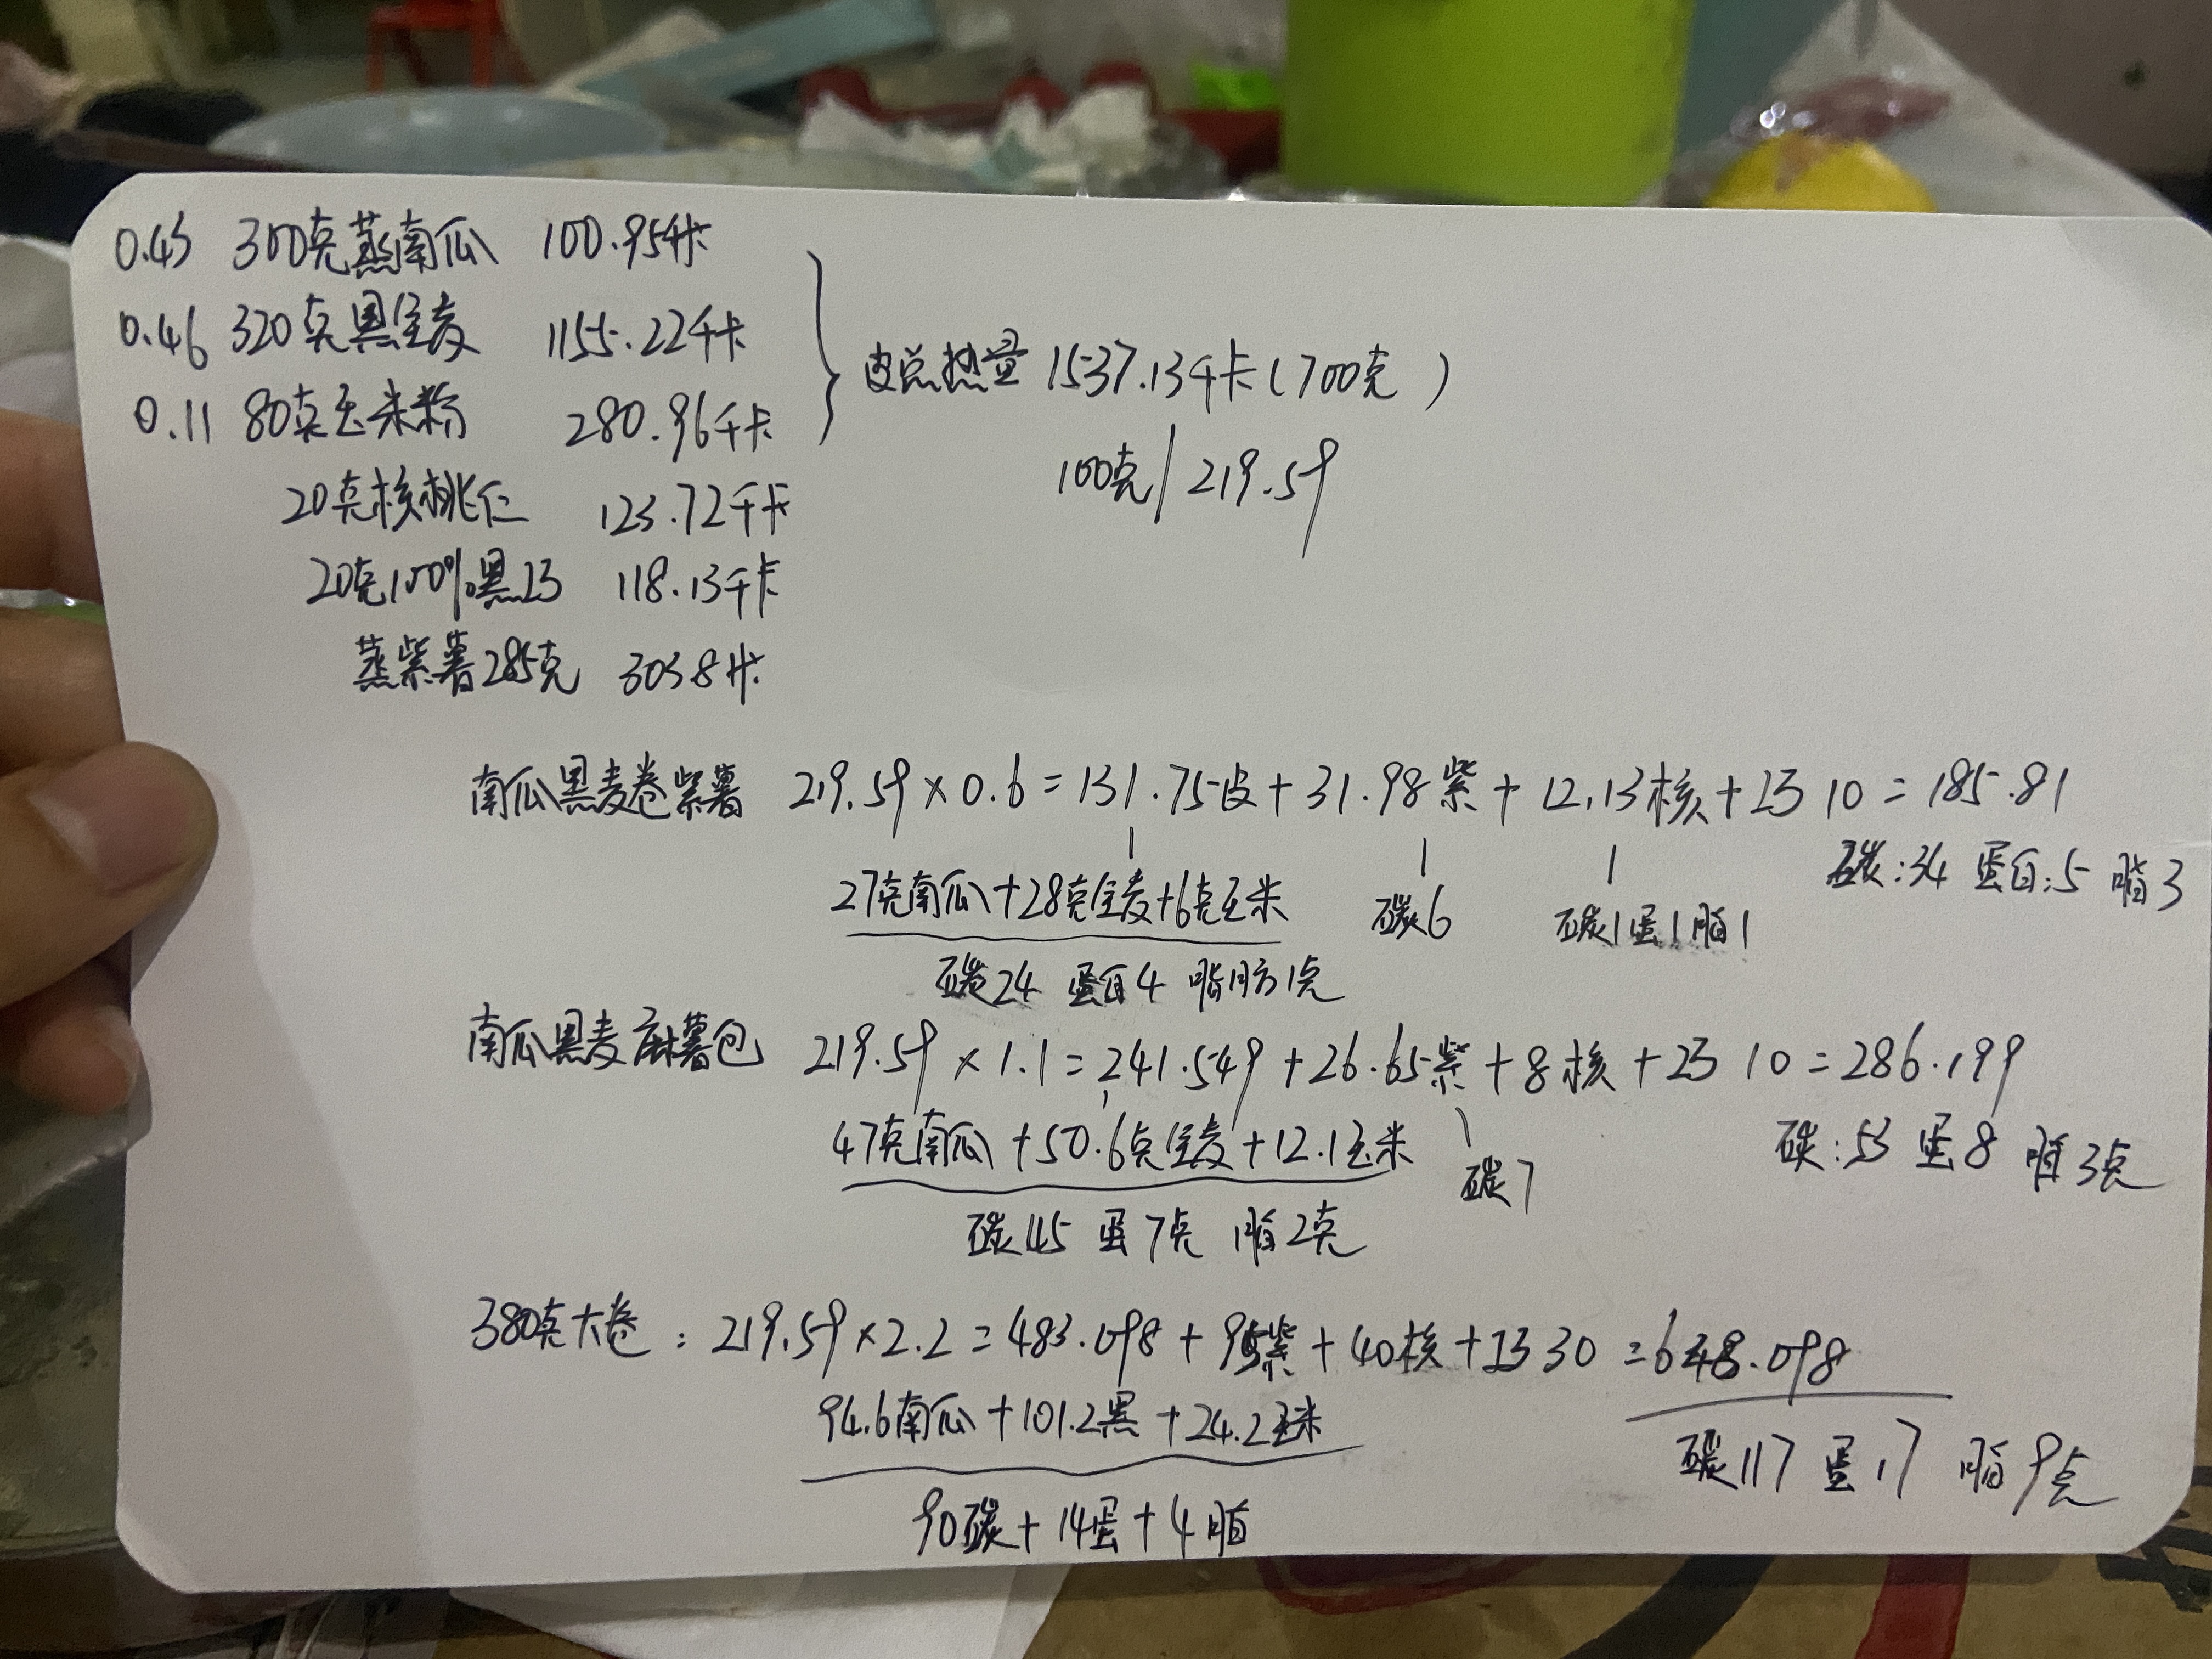 0.43 300克蒸南瓜 100.95千卡
0.46 320克黑全麦 1155.22千卡
0.11 80克玉米粉 280.96千卡
皮总热量 1537.13千卡(700克)
100克/219.59
20克核桃仁 123.72千卡
20克100%黑巧 118.13千卡
蒸紫薯285克 303.8千卡
南瓜黑麦卷紫薯 219.59×0.6=131.75皮+31.98紫+12.13核+巧10=185.81
27克南瓜+28克全麦+6克玉米 碳6 碳1蛋1脂1 碳:34 蛋白:5 脂3
碳24 蛋白4 脂肪1克
南瓜黑麦麻薯包 219.59×1.1=241.549+26.65紫+8核+巧10=286.199
47克南瓜+50.6克全麦+12.1玉米 碳7 碳:53 蛋8 脂3克
碳45 蛋7克 脂2克
380克大卷:219.59×2.2=483.098+95紫+40核+巧30=648.098
94.6南瓜+101.2黑+24.2玉米
碳117 蛋17 脂9克
90碳+14蛋+4脂